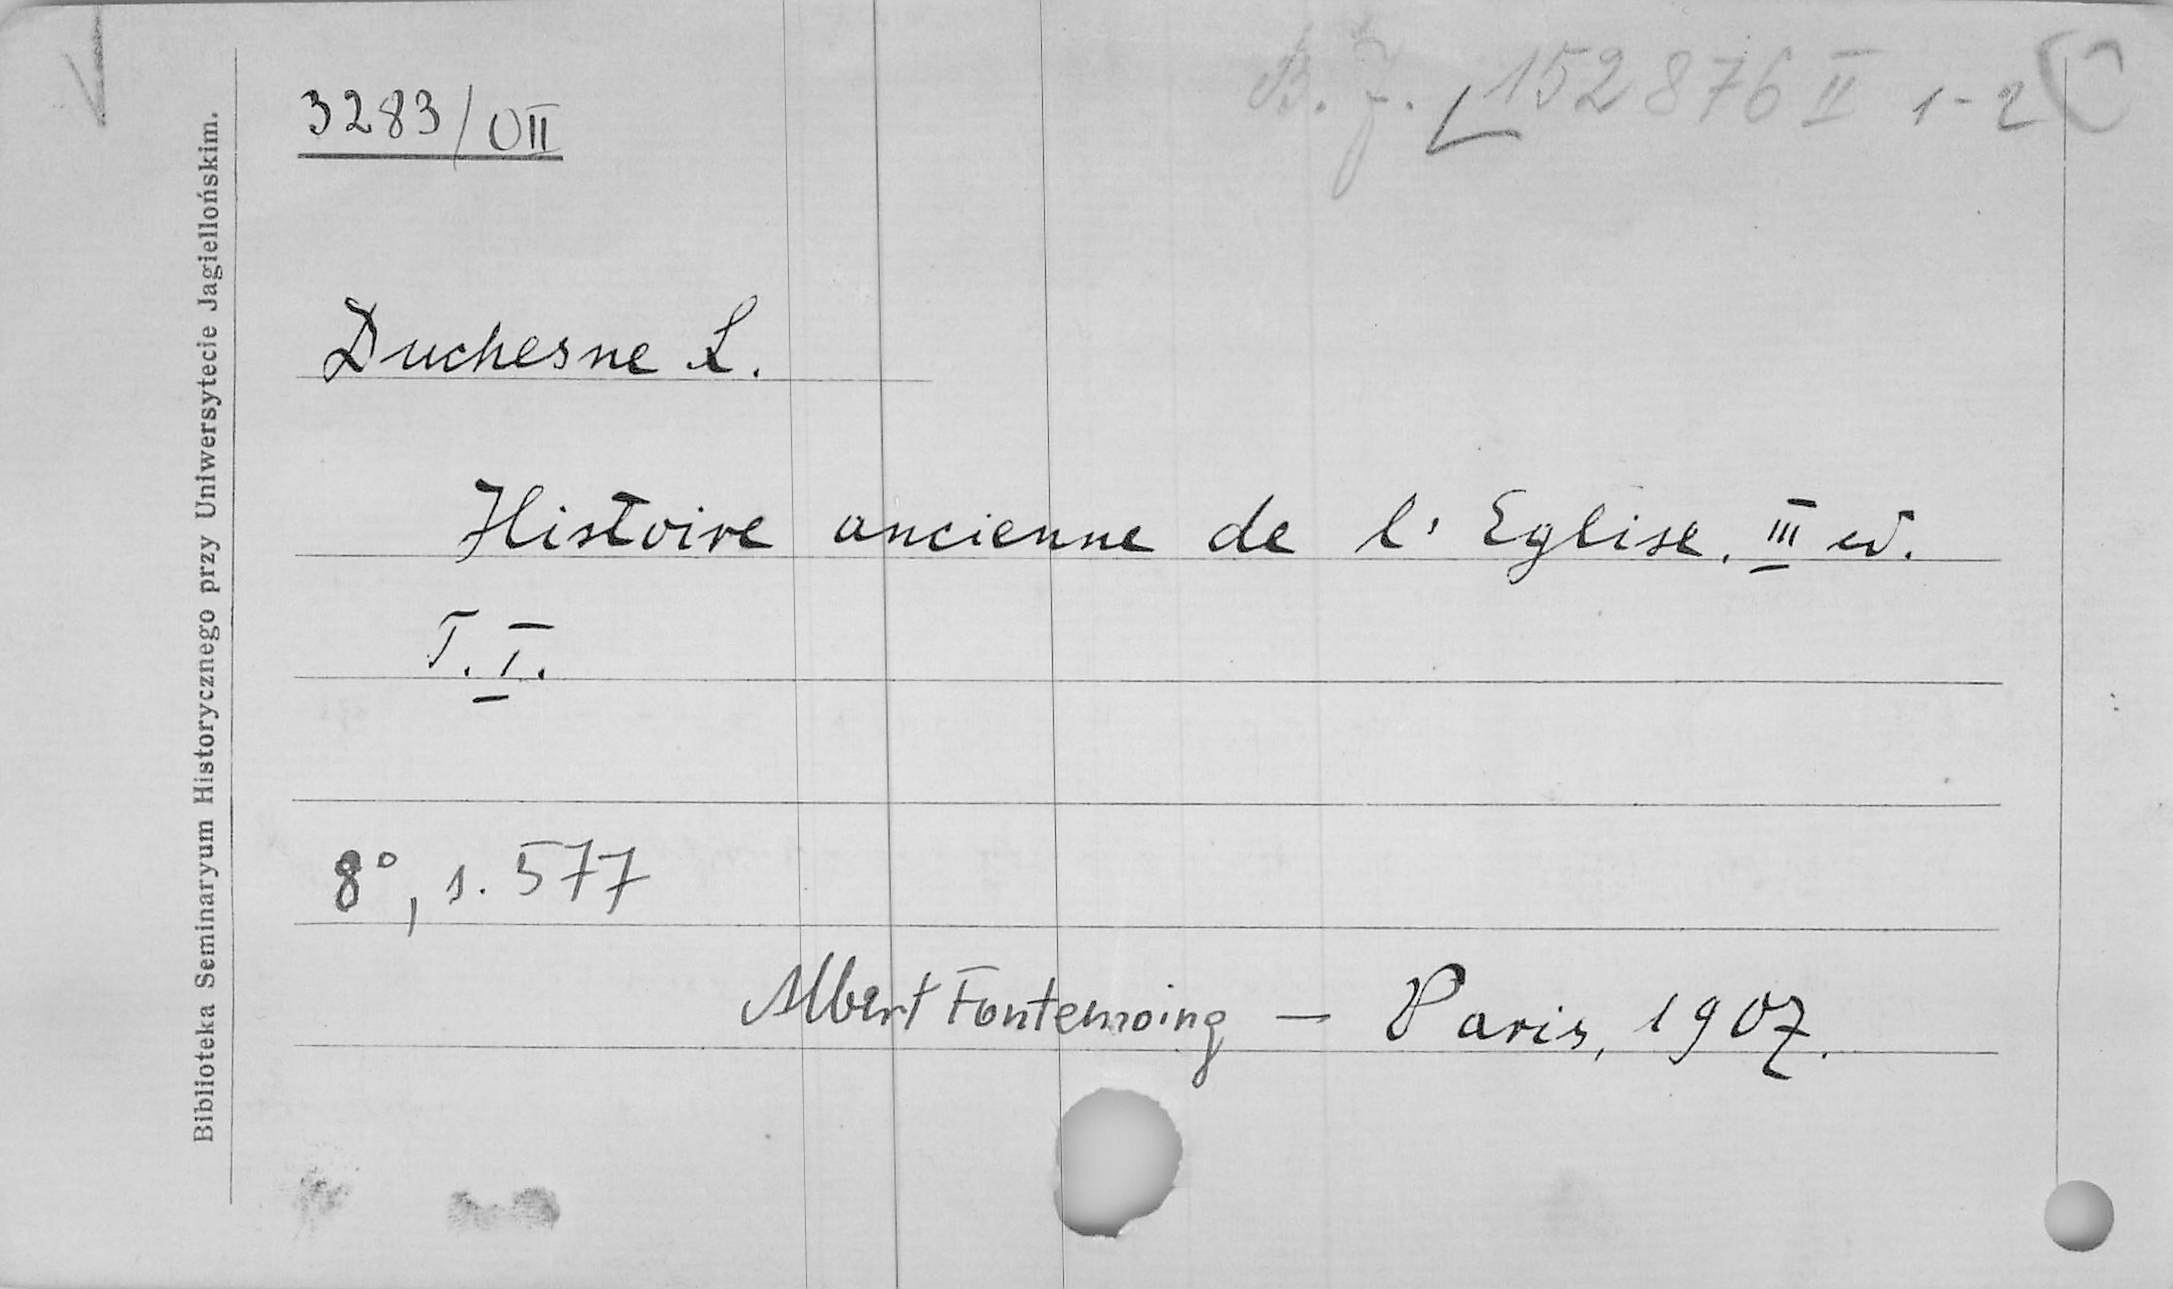 3283/VII
B. J. 152876 II 1-2
Duchesne L.
Histoire ancienne de l'Eglise. III ed.
T. I.
8°, s. 577
Albert Fontemoing — Paris, 1907.
Biblioteka Seminaryum Historycznego przy Uniwersytecie Jagiellońskim.